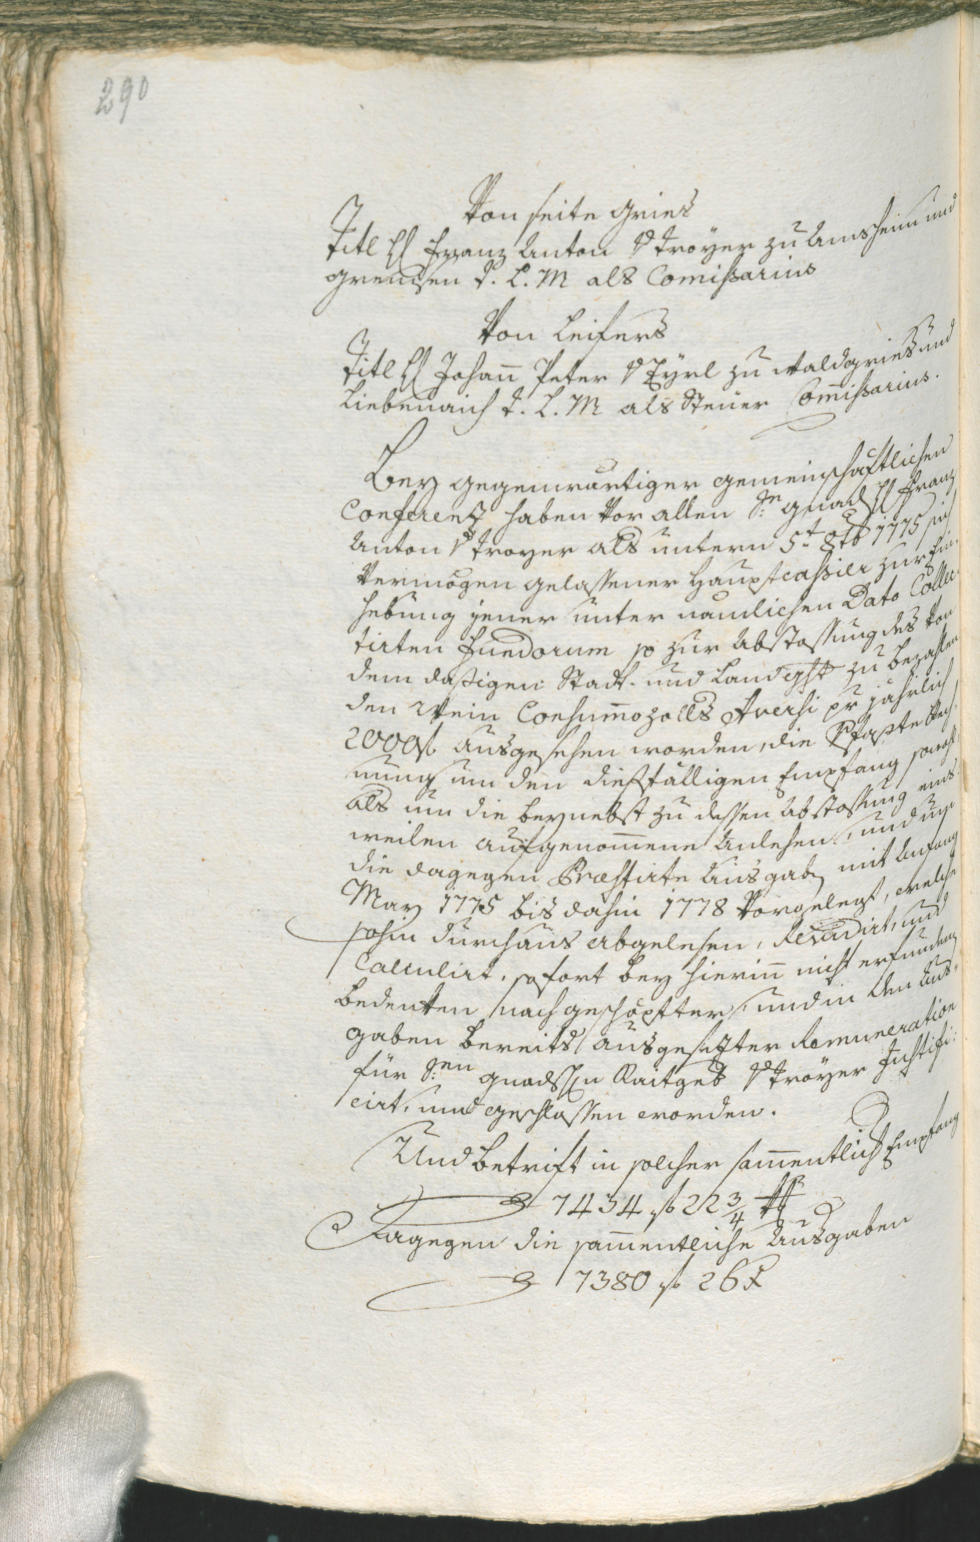 290
Von seite Gries
Titl H Franz Anton v Troÿer zu Aufhseim und
Greissen T. L. M als Comißarius
Von Leifers
Titl H Johann Peter v Eÿrl zu Waldgries und
Liebenaich T. L. M als Steuer Commißarius.
Beÿ gegenwärtiger gemeinschäftlichen
Conferenz haben vor allen Sr gnad H Franz
Anton v Troyer als unterm 5t 8tb 1775 sich
vermögen gelassener Hauptcaßier zur Ein-
hebung jener unter nämlichen Dato Collec-
tirten Fundorum so zur Abstossung des von
dem dasigen Stadt- und Landght zu bezahlen-
den Wein Consumozolls Aversi pr jährlich
2000 f ausgesehen worden, die Rech-
nung um den dießfälligen Empfang sowohl
als um die beÿnebst zu dessen Abstossung eins-
weilen aufgenommene Anlehen, und um
die dagegen Præstirte Ausgab mit Anfang
Maÿ 1775 bis dahin 1778 vorgelegt, welche
sohin durchaus abgelesen, Revidirt, und
Calculirt, sofort beÿ hierinn nicht erfundenen
bedenken nach geschöpfter, und in den Aus-
gaben bereits ausgesezter Remuneration
für Sen gnadH Raitgeb v Troÿer Justifi-
cirt, und geschlossen worden.
Und betrift in solcher sammentlich Empfang
7434 f 22 3/4 x
Dagegen die sammentliche Ausgaben
7380 f 26 x